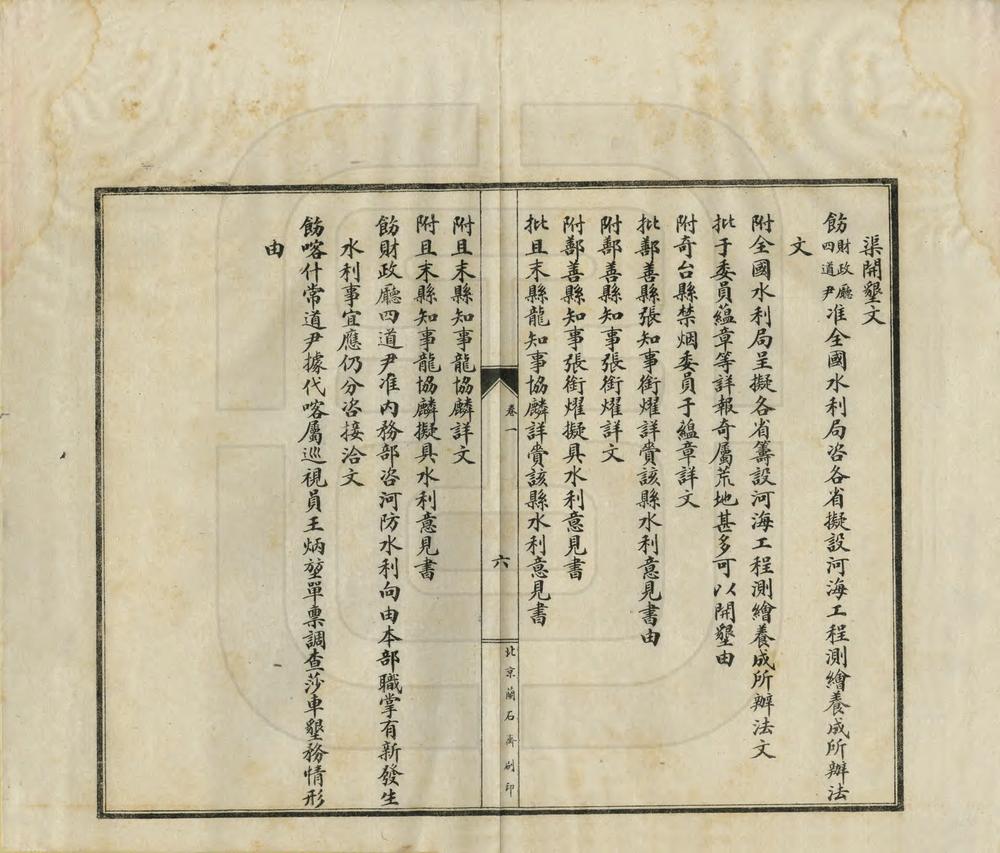 渠開墾文
飭財政廳四道尹准全國水利局咨各省擬設河海工程測繪養成所辦法
文
附全國水利局呈擬各省籌設河海工程測繪養成所辦法文
批于委員蘊章等詳報奇屬荒地甚多可以開墾由
附奇台縣禁烟委員于蘊章詳文
批鄯善縣張知事銜燿詳賫該縣水利意見書由
附鄯善縣知事張銜燿詳文
附鄯善縣知事張銜燿擬具水利意見書
批且末縣龍知事協麟詳賫該縣水利意見書
卷一
六
北京蘭石齋刷印
附且末縣知事龍協麟詳文
附且末縣知事龍協麟擬具水利意見書
飭財政廳四道尹准內務部咨河防水利向由本部職掌有新發生
水利事宜應仍分咨接洽文
飭喀什常道尹據代喀屬巡視員王炳堃單稟調查莎車墾務情形
由